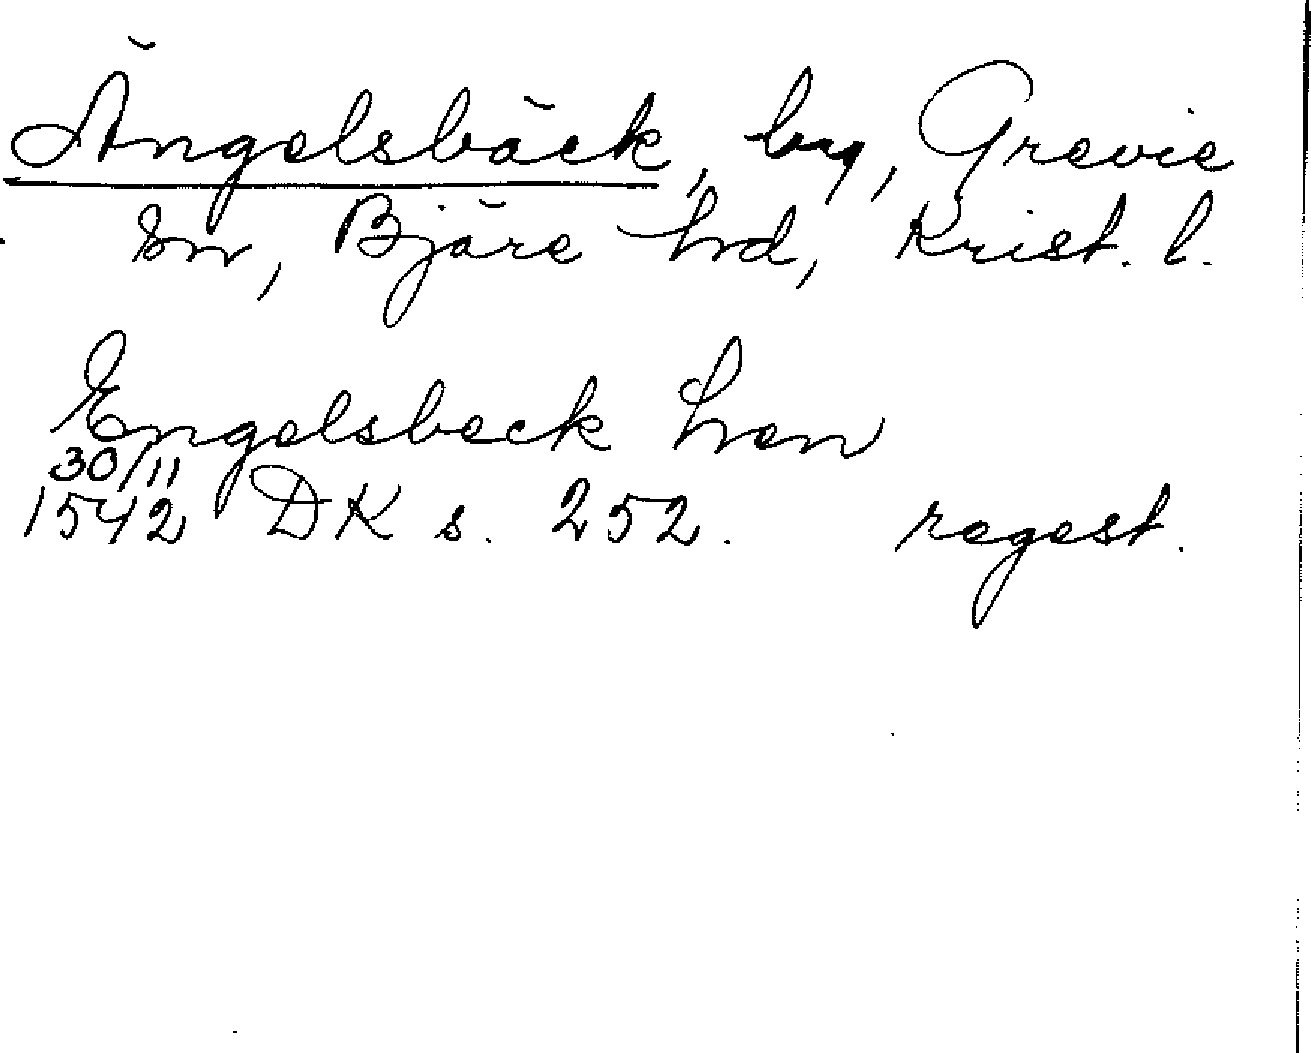 Ängelsbäck, by, Grevie
sn, Bjäre hd, Krist. l.
Engelsbeck hen
30/11
1542 DK s. 252. regest.